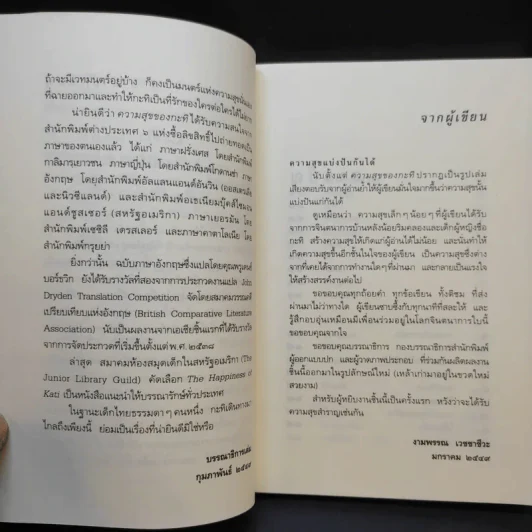 ถ้าจะมีเวทมนตร์อยู่บ้าง ก็คงเป็นมนตร์แห่งความสุขนั่นเอง
ที่ฉายออกมาและทำให้กะทิเป็นที่รักของใครต่อใครได้ไม่ยาก
น่ายินดีว่า ความสุขของกะทิ ได้รับความสนใจจาก
สำนักพิมพ์ต่างประเทศ ๖ แห่งซื้อลิขสิทธิ์ไปถ่ายทอดเป็น
ภาษาของตนเองแล้ว ได้แก่ ภาษาฝรั่งเศส โดยสำนักพิมพ์
กาลิมารุเยาวชน ภาษาญี่ปุ่น โดยสำนักพิมพ์โกดานช่า ภาษา
อังกฤษ โดยสำนักพิมพ์อัลแลนแอนด์อันวิน (ออสเตรเลีย
และนิวซีแลนด์) และสำนักพิมพ์เอเธเนียมบุ๊คส์ไซมอน
แอนด์ชูสเซอร์ (สหรัฐอเมริกา) ภาษาเยอรมัน โดย
สำนักพิมพ์เซซีลี เดรสเลอร์ และภาษาคาตาโลเนีย โดย
สำนักพิมพ์กรุยย่า
ยิ่งกว่านั้น ฉบับภาษาอังกฤษซึ่งแปลโดยคุณพรูเดนซ์
บอร์ชวิก ยังได้รับรางวัลที่สองจากการประกวดงานแปล John
Dryden Translation Competition จัดโดยสมาคมวรรณคดี
เปรียบเทียบแห่งอังกฤษ (British Comparative Literature
Association) นับเป็นผลงานจากเอเชียชิ้นแรกที่ได้รับรางวัล
จากการจัดประกวดที่เริ่มขึ้นตั้งแต่ พ.ศ. ๒๕๓๘
ล่าสุด สมาคมห้องสมุดเด็กในสหรัฐอเมริกา (The
Junior Library Guild) คัดเลือก The Happiness of
Kati เป็นหนังสือแนะนำให้บรรณารักษ์ทั่วประเทศ
ในฐานะเด็กไทยธรรมดาๆ คนหนึ่ง กะทิเดินทางมา
ไกลถึงเพียงนี้ ย่อมเป็นเรื่องที่น่ายินดีมิใช่หรือ
บรรณาธิการเล่ม
กุมภาพันธ์ ๒๕๔๙
จากผู้เขียน
ความสุขแบ่งปันกันได้
นับตั้งแต่ ความสุขของกะทิ ปรากฏเป็นรูปเล่ม
เสียงตอบรับจากผู้อ่านย้ำให้ผู้เขียนมั่นใจมากขึ้นว่าความสุขนั้น
แบ่งปันแก่กันได้
ดูเหมือนว่า ความสุขเล็กๆ น้อยๆ ที่ผู้เขียนได้รับ
จากการจินตนาการบ้านหลังน้อยริมคลองและเด็กผู้หญิงชื่อ
กะทิ สร้างความสุขให้เกิดแก่ผู้อ่านได้ไม่น้อย และนั่นทำให้
เกิดความสุขขึ้นอีกชั้นในใจของผู้เขียน เป็นความสุขซึ่งต่าง
จากที่เคยได้จากการทำงานใดๆ ที่ผ่านมา และกลายเป็นแรงใจ
ให้สร้างสรรค์งานต่อไป
ขอขอบคุณทุกถ้อยคำ ทุกข้อเขียน ทั้งติชม ที่ส่ง
ผ่านมาไม่ว่าทางใด ผู้เขียนซาบซึ้งกับทุกนาทีที่สละให้ และ
รู้สึกอบอุ่นเหมือนมีเพื่อนร่วมอยู่ในโลกจินตนาการใบนี้
ขอขอบคุณจากใจ
ขอขอบคุณบรรณาธิการ กองบรรณาธิการสำนักพิมพ์
ผู้ออกแบบปก และผู้วาดภาพประกอบ ที่ร่วมกันผลิตผลงาน
ชิ้นนี้ออกมาในรูปลักษณ์ใหม่ (เหล้าเก่ามาอยู่ในขวดใหม่
สวยงาม)
สำหรับผู้หยิบงานชิ้นนี้เป็นครั้งแรก หวังว่าจะได้รับ
ความสุขสำราญเช่นกัน
งามพรรณ เวชชาชีวะ
มกราคม ๒๕๔๙